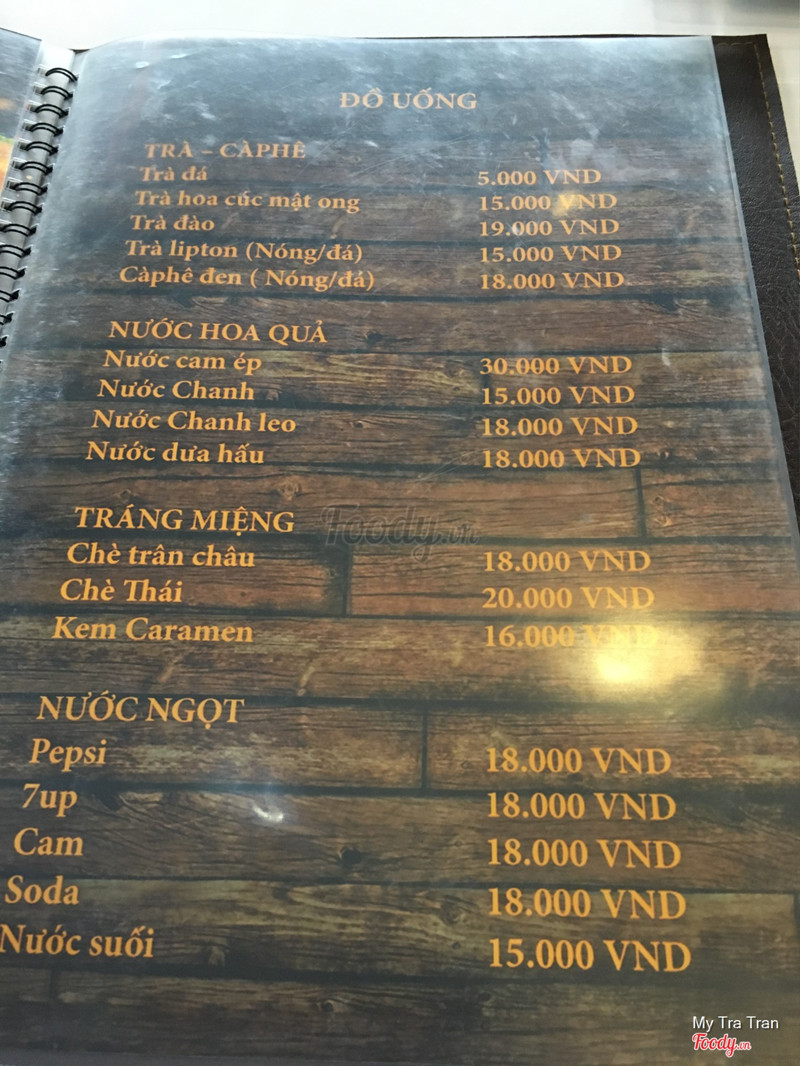 ĐỒ UỐNG
TRÀ – CÀPHÊ
Trà đá 5.000 VND
Trà hoa cúc mật ong 15.000 VND
Trà đào 19.000 VND
Trà lipton (Nóng/đá) 15.000 VND
Càphê đen ( Nóng/đá) 18.000 VND
NƯỚC HOA QUẢ
Nước cam ép 30.000 VND
Nước Chanh 15.000 VND
Nước Chanh leo 18.000 VND
Nước dưa hấu 18.000 VND
TRÁNG MIỆNG
Foody.vn
Chè trân châu 18.000 VND
Chè Thái 20.000 VND
Kem Caramen 16.000 VND
NƯỚC NGỌT
Pepsi 18.000 VND
7up 18.000 VND
Cam 18.000 VND
Soda 18.000 VND
Nước suối 15.000 VND
My Tra Tran
Foody.vn